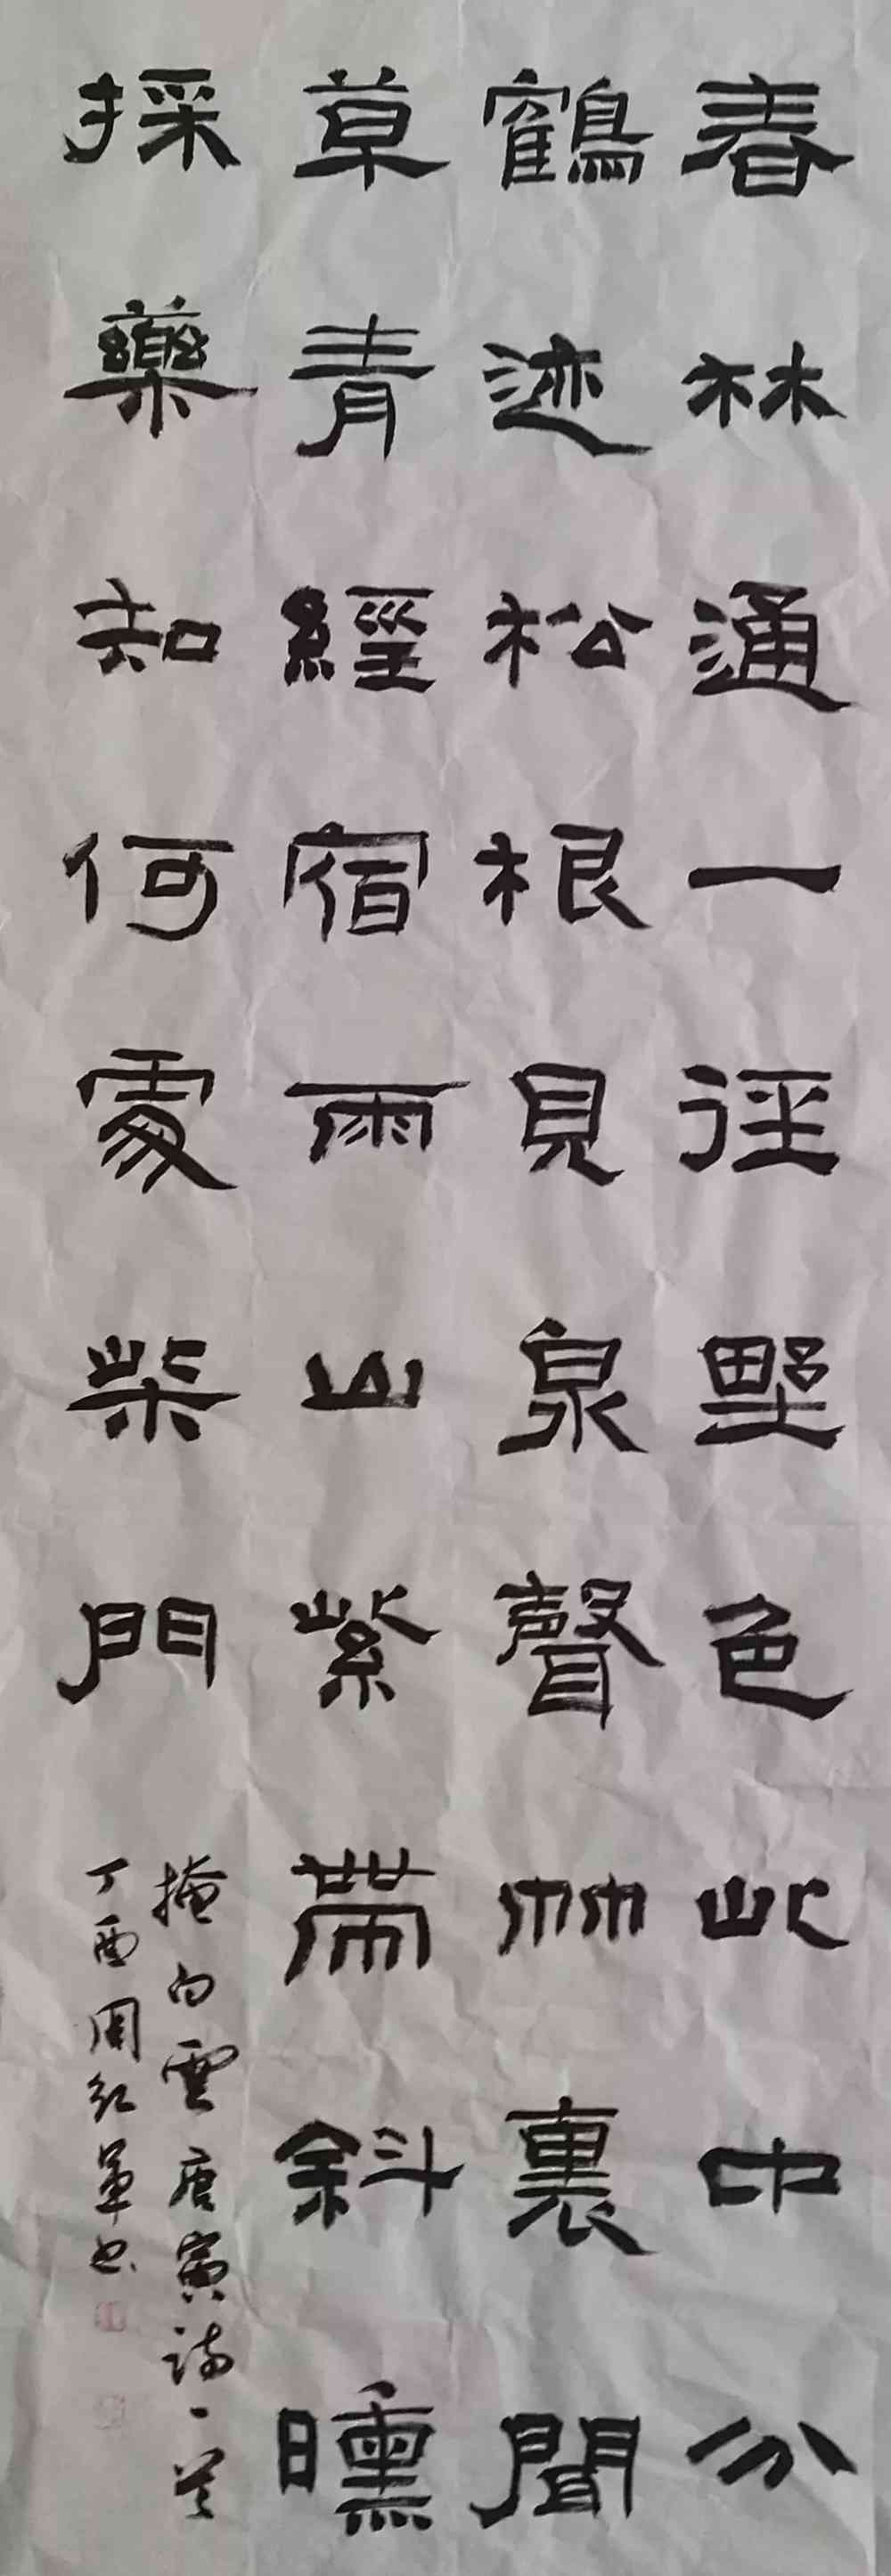 春林通一徑野色此中分
鶴迹松根見泉聲竹裏聞
草青經宿雨山紫帶斜曛
採藥知何處柴門
掩白雲唐寅詩一首
丁酉周紅軍書